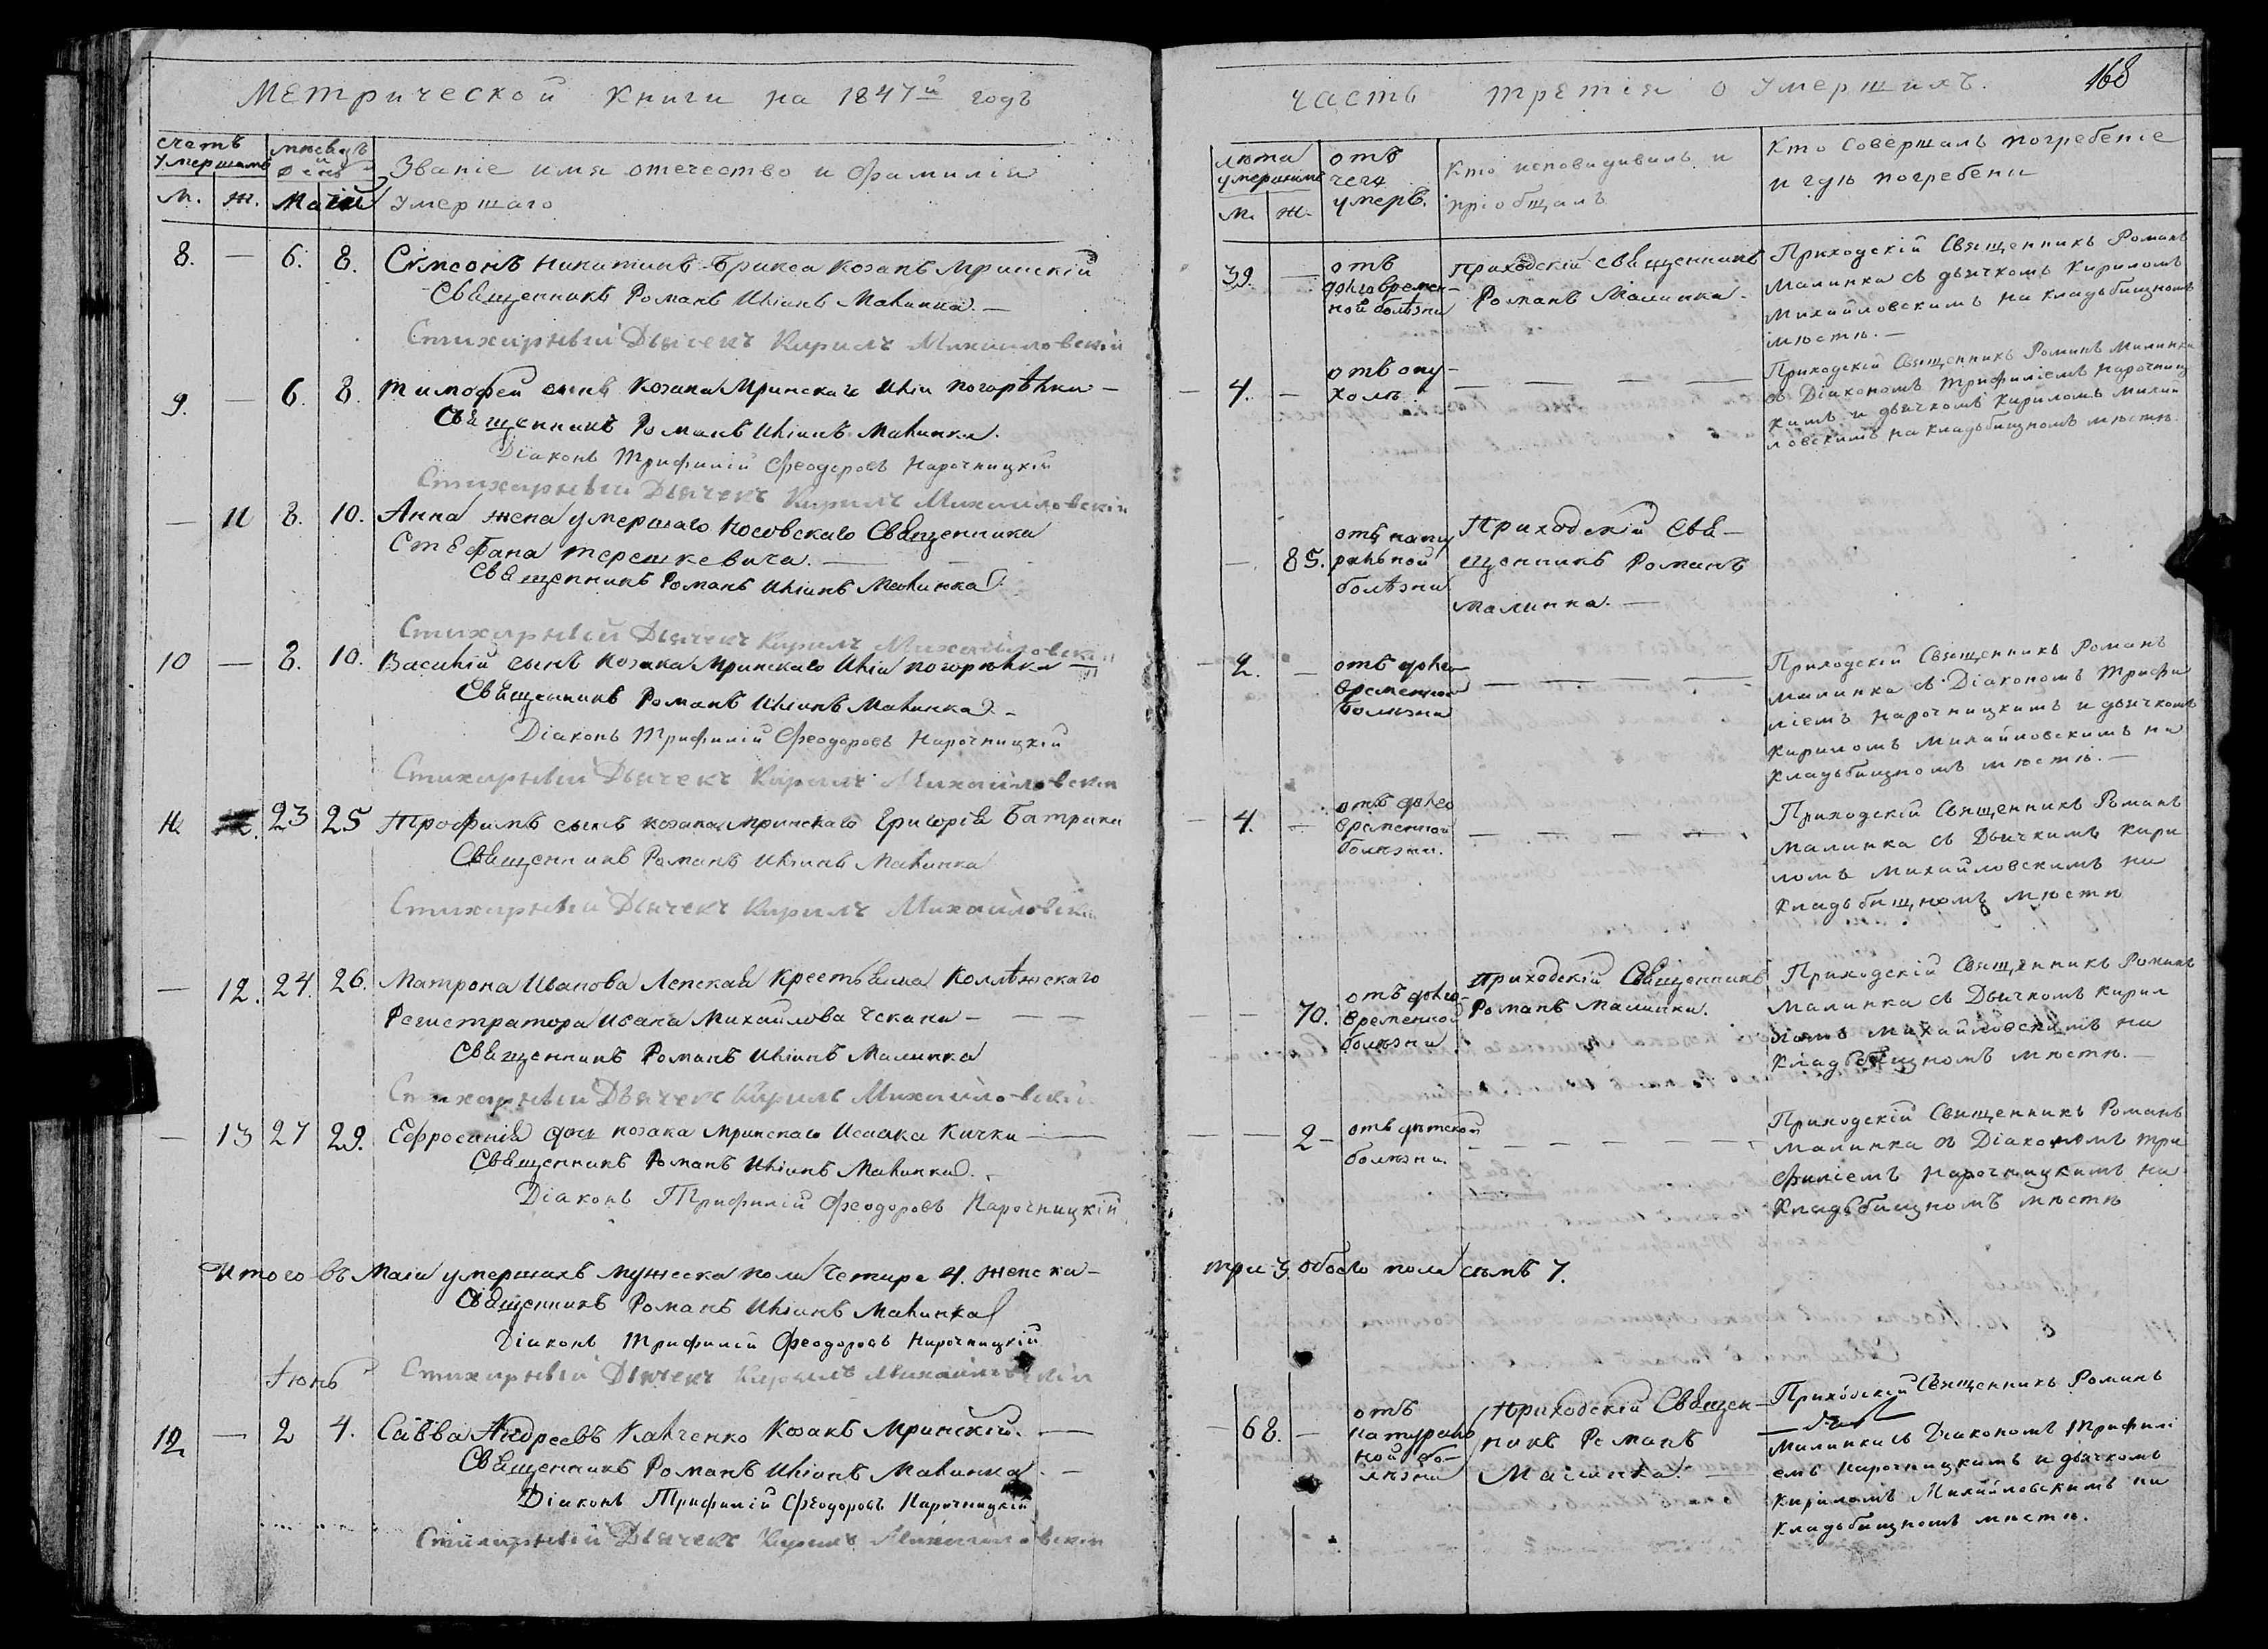 Метрической книги на 1847й годъ
счетъ умершимъ
мѣсяцъ и день
Званіе имя отечество и фамилія
умершаго
М. Ж. Маій
8. — 6. 8. Симеонъ Никитинъ Брикса козакъ Мринскій
Священникъ Романъ Иліинъ Малинка. —
Стихарный Дьячекъ Кирилъ Михайловскій
9. — 6. 8. Тимофей сынъ козака Мринскаго Иліи Погорѣлки —
Священникъ Романъ Иліинъ Малинка.
Діаконъ Трифилій Феодоровъ Нарочницкій
Стихарный Дьячекъ Кирилъ Михайловскій
— 11 8. 10. Анна жена умершаго Носовскаго Священника
Стефана Терешкевича. —
Священникъ Романъ Иліинъ Малинка.
Стихарный Дьячекъ Кирилъ Михайловскій
10 — 8. 10. Василій сынъ козака Мринскаго Иліи Погорѣлки —
Священникъ Романъ Иліинъ Малинка. —
Діаконъ Трифилій Феодоровъ Нарочницкій
Стихарный Дьячекъ Кирилъ Михайловскій
11. 23 25 Трофимъ сынъ козака Мринскаго Григорія Батрака
Священникъ Романъ Иліинъ Малинка
Стихарный Дьячекъ Кирилъ Михайловскій
— 12. 24. 26. Матрона Иванова Лепская крестьянка Коллѣжскаго
Регистратора Ивана Михайлова Чекана — — —
Священникъ Романъ Иліинъ Малинка
Стихарный Дьячекъ Кирилъ Михайловскій
— 13 27 29. Ефросинія дочь козака Мринскаго Исаака Кички —
Священникъ Романъ Иліинъ Малинка. —
Діаконъ Трифилій Феодоровъ Нарочницкій
Итого въ Маіи умершихъ мужеска пола четыре 4. женска —
Священникъ Романъ Иліинъ Малинка
Діаконъ Трифилій Феодоровъ Нарочницкій
Стихарный Дьячекъ Кирилъ Михайловскій
Іюнь
12 — 2 4. Савва Андреевъ Калченко козакъ Мринскій. —
Священникъ Романъ Иліинъ Малинка. —
Діаконъ Трифилій Феодоровъ Нарочницкій
Стихарный Дьячекъ Кирилъ Михайловскій
часть третія о умершихъ.
168
лѣта умершимъ
М. Ж.
отъ
чего
умеръ.
Кто исповидивалъ и
пріобщалъ
Кто совершалъ погребеніе
и гдѣ погребени
39. —
отъ
долговремен-
ной болѣзни
Приходскій священникъ
Романъ Малинка.
Приходскій Священникъ Романъ
Малинка съ дьячкомъ Кириломъ
Михайловскимъ на кладьбищномъ
мѣстѣ. —
4. —
отъ опу-
холѣ.
— — — —
Приходскій Священникъ Романъ Малинка
съ Діакономъ Трифиліемъ Нарочниц
кимъ и дьячкомъ Кириломъ Михай
ловскимъ на кладьбищномъ мѣстѣ.
— 85.
отъ нату
ральной
болѣзни
Приходскій Свя-
щенникъ Романъ
Малинка. —
2. —
отъ долго-
временной
болѣзни
— — — —
Приходскій Священникъ Романъ
Малинка съ Діакономъ Трифи
ліемъ Нарочницкимъ и дьячкомъ
Кириломъ Михайловскимъ на
кладьбищномъ мѣстѣ. —
4. —
отъ долго
временной
болѣзни.
— — — —
Приходскій Священникъ Романъ
Малинка съ Дьячкомъ Кири
ломъ Михайловскимъ на
кладьбищномъ мѣстѣ
— 70.
отъ долго-
временной
болѣзни
Приходскій Священникъ
Романъ Малинка.
Приходскій Священникъ Романъ
Малинка съ Дьячкомъ Кирил
ломъ Михайловскимъ на
кладьбищномъ мѣстѣ. —
— 2 —
отъ дѣтской
болѣзни.
— — — —
Приходскій Священникъ Романъ
Малинка съ Діакономъ Три
филіемъ Нарочницкимъ на
кладьбищномъ мѣстѣ
три 3. обоего пола сѣмъ 7.
68. —
отъ
натураль
ной бо-
лѣзни
Приходскій Священ-
никъ Романъ
Малинка. —
Приходскій Священникъ Романъ
Малинка съ Діакономъ Трифилі
емъ Нарочницкимъ и дьячкомъ
Кириломъ Михайловскимъ на
кладьбищномъ мѣстѣ.